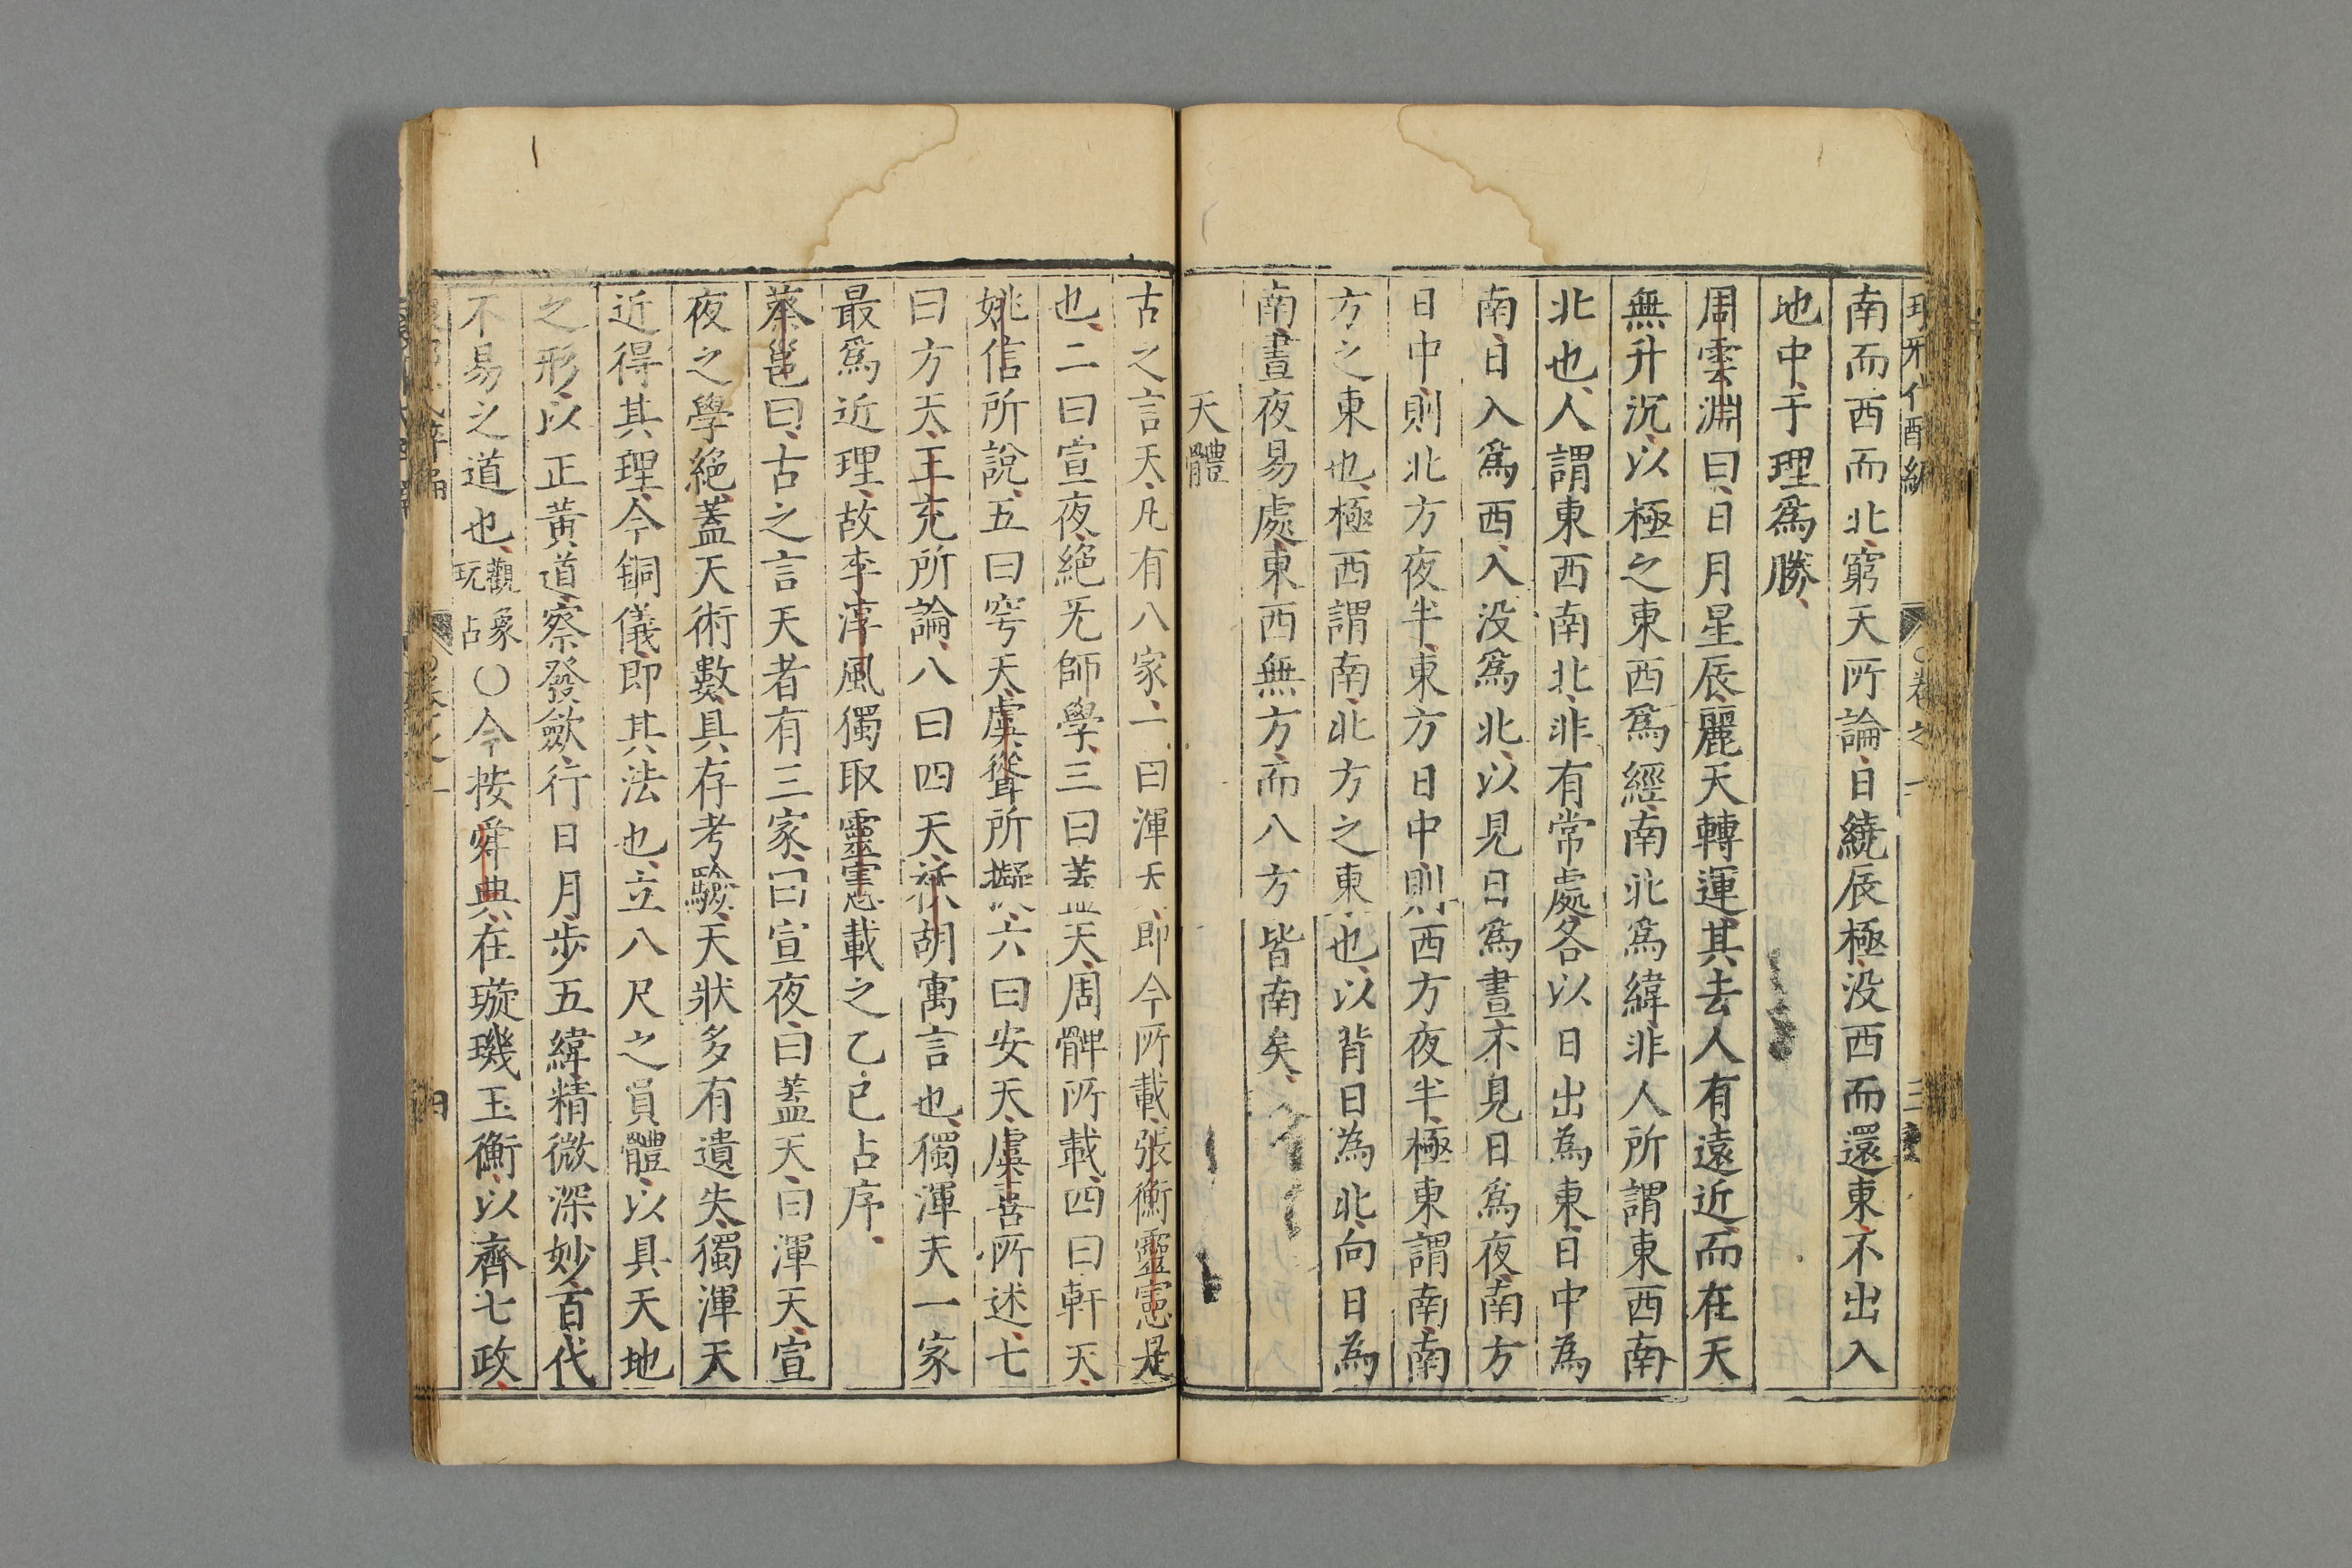 卷之一
三
南而西而北窮天所論日繞辰極没西而還東不出入
地中于理爲勝
周雲淵曰日月星辰麗天轉運其去人有遠近而在天
無升沉以極之東西爲經南北爲緯非人所謂東西南
北也人謂東西南北非有常處各以日出為東日中為
南日入爲西入没爲北以見日爲晝不見日爲夜南方
日中則北方夜半東方日中則西方夜半極東謂南南
方之東也極西謂南北方之東也以背日為北向日為
南晝夜易處東西無方而八方皆南矣
天體
古之言天凡有八家一曰渾天即今所載張衡靈憲是
也二曰宣夜絕无師學三曰蓋天周髀所載四曰軒天
姚信所說五曰穹天虞聳所擬六曰安天虞喜所述七
曰方天王充所論八曰四天祅胡寓言也獨渾天一家
最爲近理故李淳風獨取靈憲載之乙巳占序
蔡邕曰古之言天者有三家曰宣夜曰蓋天曰渾天宣
夜之學絕蓋天術數具存考驗天狀多有遺失獨渾天
近得其理今銅儀即其法也立八尺之員體以具天地
之形以正黃道察發斂行日月步五緯精微深妙百代
不易之道也觀象玩占○今按舜典在璇璣玉衡以齊七政